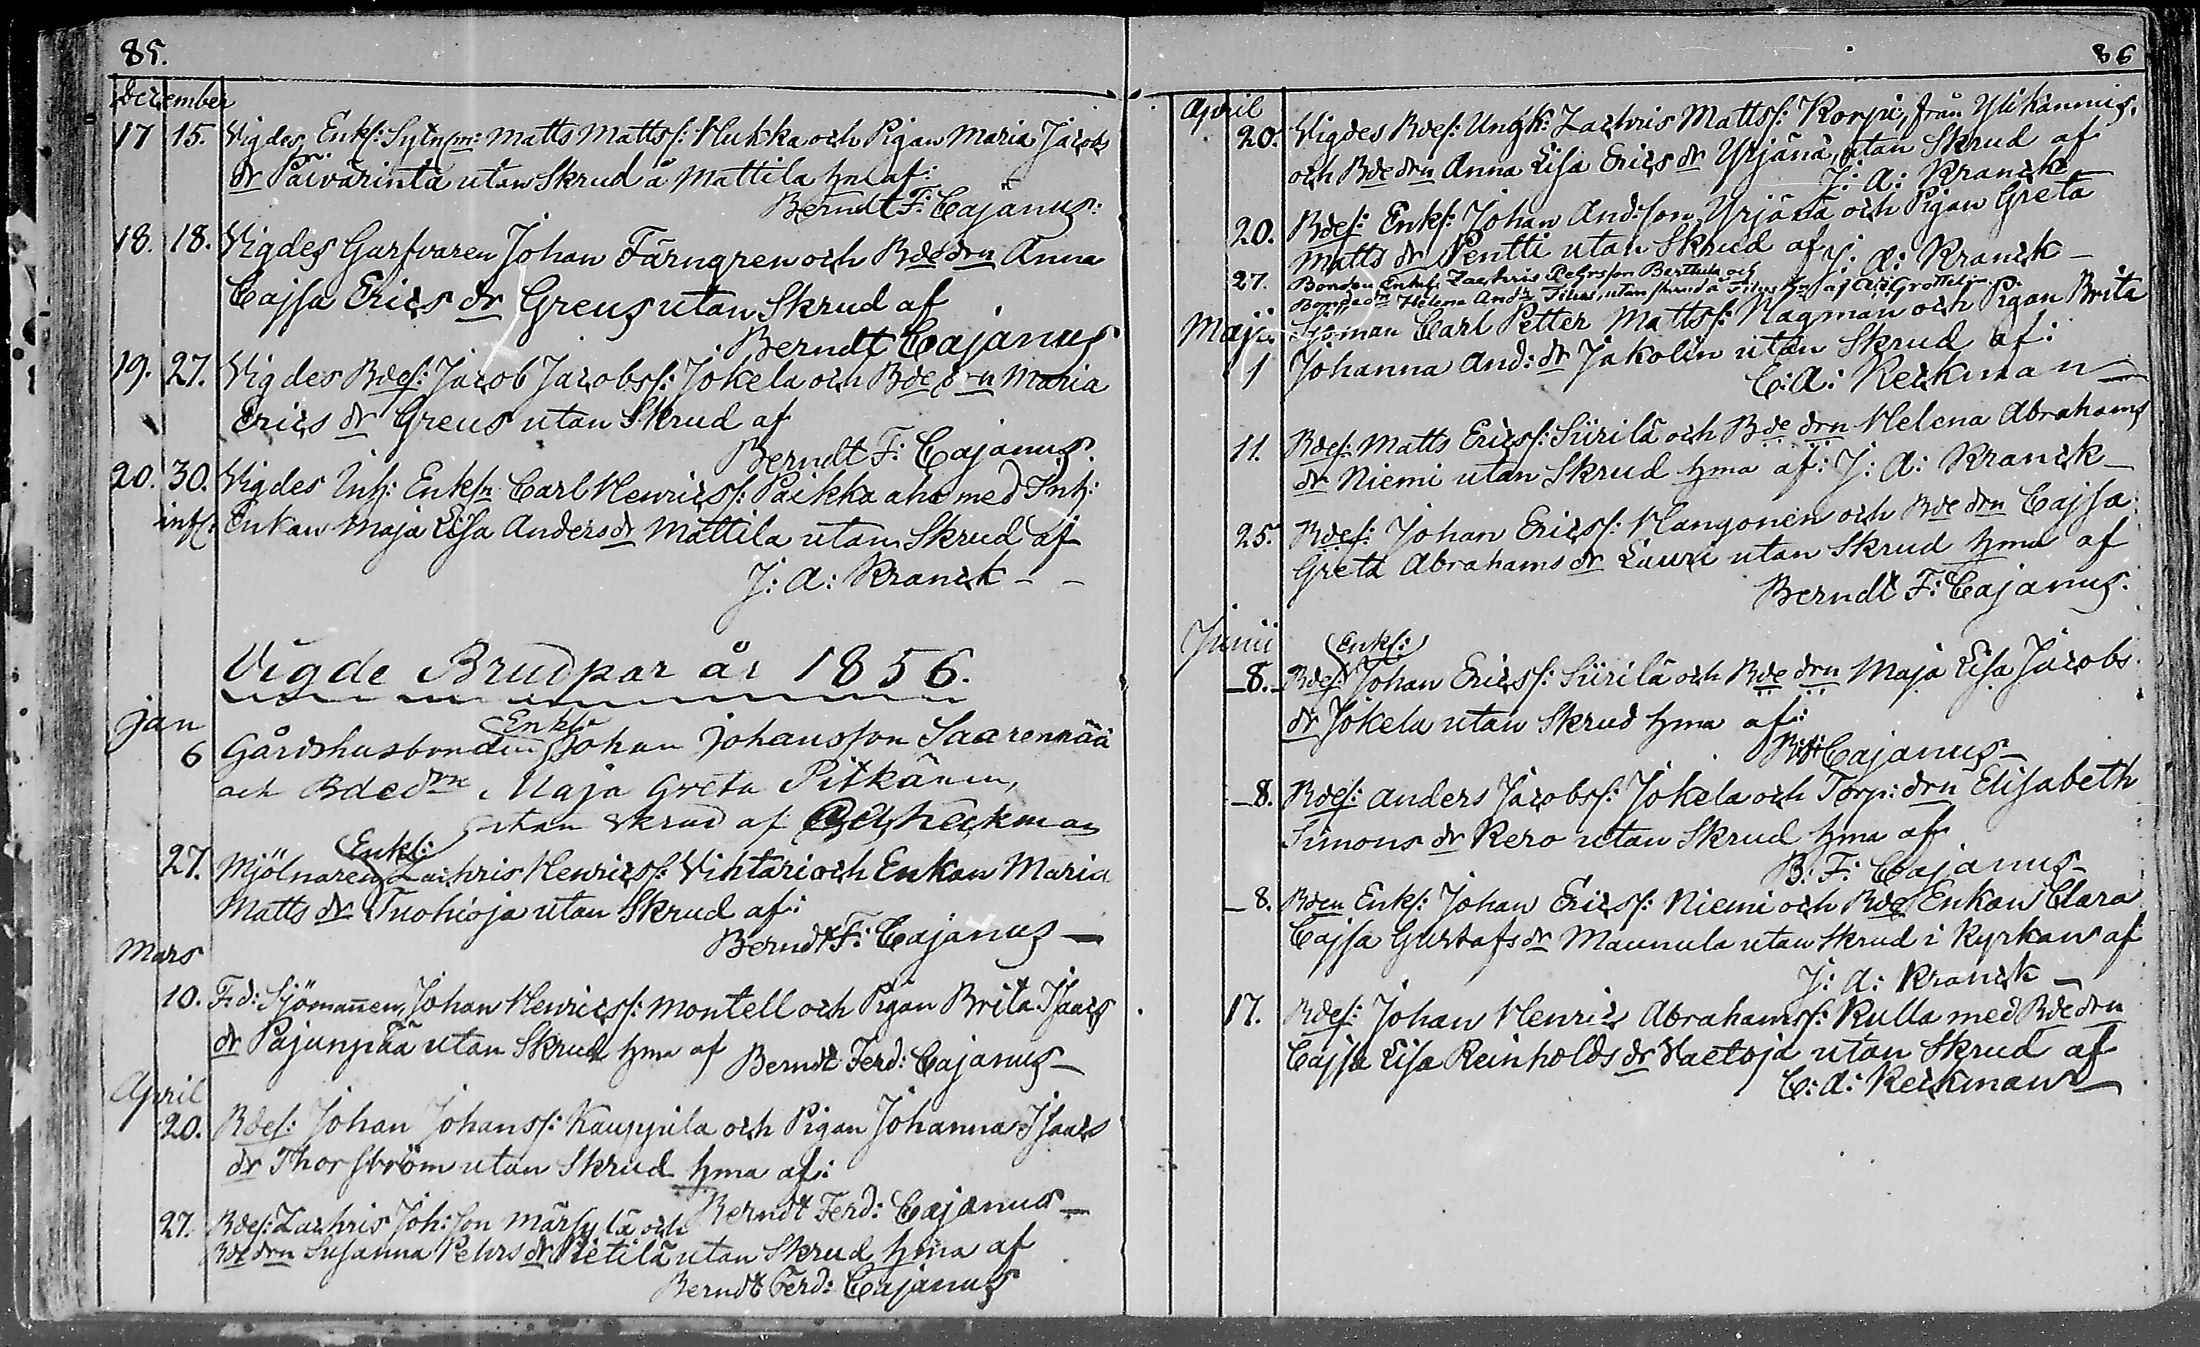 85.
December
17 15. Vigdes Enkf: Sytnm: Matts Mattsf: Hukka och Pigan Maria Jacobs
dr Päivärinta utan Skrud å Mattila hm af:
Berndt F: Cajanus:
18. 18. Vigdes Garfvaren Johan Färngren och Bdedrn Anna
Cajsa Erics dr Greus utan Skrud af
Berndt Cajanus
19. 27. Vigdes Bdes: Jacob Jacobsf: Jokela och Bdedrn Maria
Erics dr Greus utan Skrud af
Berndt F: Cajanus.
20. 30. Vigdes Inh: Enkfn Carl Henricsf: Paikka aho med Inh:
Enkan Maja Lisa Anders dr Mattila utan Skrud af
J: A: Kranck - -
Vigde Brudpar år 1856.
Jan
Enkf:
6 Gårdshusbonden Johan Johansson Saarenpää
och Bdedrn Maja Greta Pitkänen,
utan skrud af Heickman
Enkf:
27. Mjölnaren Zachris Henricsf: Vihtari och Enkan Maria
Matts dr Tuohioja utan Skrud af:
Berndt F: Cajanus —
Mars
10. F.d: Sjömannen Johan Henricsf: Montell och Pigan Brita Isaacs
dr Pajunpää utan Skrud hma af Berndt Ferd: Cajanus —
April
20. Bdes: Johan Johansf: Kauppila och Pigan Johanna Isaacs
dr Thorström utan Skrud hma af:
Berndt Ferd: Cajanus —
27. Bdes: Zachris Joh:son Märsylä och
Bdedrn Susanna Pehrs dr Pietilä utan Skrud hma af
Berndt Ferd: Cajanus
86
April
20. Vigdes Bdes: Ungk: Zachris Mattsf: Korpi, från Ylikannus,
och Bdedrn Anna Lisa Erics dr Yrjänä, utan Skrud af
J: A: Kranck
20. Bdes: Enkf: Johan And:son Yrjänä och Pigan Greta
Matts dr Pentti utan Skrud af J: A: Kranck —
27. Bonden Enkl: Zachris Pehrsson Berttula och
Bondedn Helena And: dr Tilus, utan skrud å Tilus hm af
Maji Sjöman Carl Petter Mattsf: Hagman och Pigan Brita
1 Johanna And: dr Jakolin utan Skrud af:
C: A: Heickman —
11. Bdes: Matts Ericsf: Siirilä och Bdedrn Helena Abrahams
dr Niemi utan Skrud hma af: J: A: Kranck —
25. Bdes: Johan Ericsf: Hangonen och Bdedrn Cajsa
Greta Abrahams dr Lauri utan Skrud hma af
Berndt F: Cajanus.
Junii
Enkf:
8. Bdes: Johan Ericsf: Siirilä och Bdedrn Maja Lisa Jacobs
dr Jokela utan Skrud hma af:
Cajanus —
8. Bdes: Anders Jacobsf: Jokela och Torp: drn Elisabeth
Simons dr Kero utan Skrud hma af
B: F: Cajanus —
8. Bden Enkf: Johan Ericsf: Niemi och Bde Enkan Clara
Cajsa Gustafs dr Maunula utan Skrud i Kyrkan af
J: A: Kranck —
17. Bdes: Johan Henric Abrahamsf: Kulla med Bdedrn
Cajsa Lisa Reinholds dr Haetoja utan Skrud af
C: A: Heickman